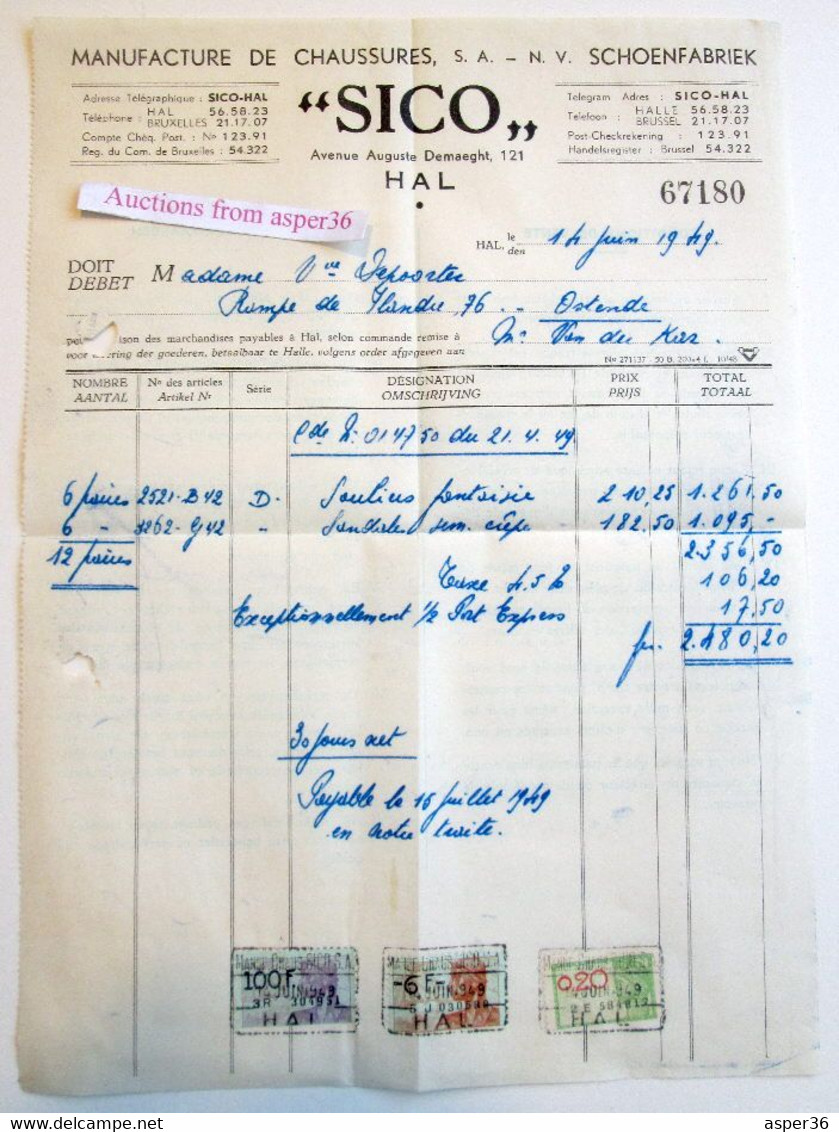 MANUFACTURE DE CHAUSSURES, S. A. – N. V. SCHOENFABRIEK
Adresse Télégraphique : SICO-HAL
Téléphone : HAL 56.58.23
BRUXELLES 21.17.07
Compte Chèq. Post. : No 123.91
Reg. du Com. de Bruxelles : 54.322
“SICO„
Avenue Auguste Demaeght, 121
HAL
Telegram Adres : SICO-HAL
Telefoon : HALLE 56.58.23
BRUSSEL 21.17.07
Post-Checkrekening : 123.91
Handelsregister : Brussel 54.322
67180
Auctions from asper36
HAL, le den 14 Juin 1949.
DOIT DEBET Madame Vve Depoorter
Rampe de Flandre, 76 – Ostende
des marchandises payables à Hal, selon commande remise à
voor levering der goederen, betaalbaar te Halle, volgens order afgegeven aan
Mr Van der
No 271137 10/48
NOMBRE AANTAL No des articles Artikel Nr Série DÉSIGNATION OMSCHRIJVING PRIX PRIJS TOTAL TOTAAL
Cde N: 014750 du 21.4.49
6 paires 2521-B42 D. Souliers fantaisie 210,25 1.261,50
6 – 1262-G42 " Sandales sem. crêpe 182,50 1.095,-
12 paires 2.356,50
Taxe 4.5 % 106,20
Exceptionnellement 1/2 Port Express 17,50
fr. 2.480,20
30 jours net
Payable le 15 juillet 1949
en notre traite.
100F
14 JUIN 1949
HAL
-6 F-
JUIN 1949
HAL
0,20
JUIN 1949
HAL
asper36